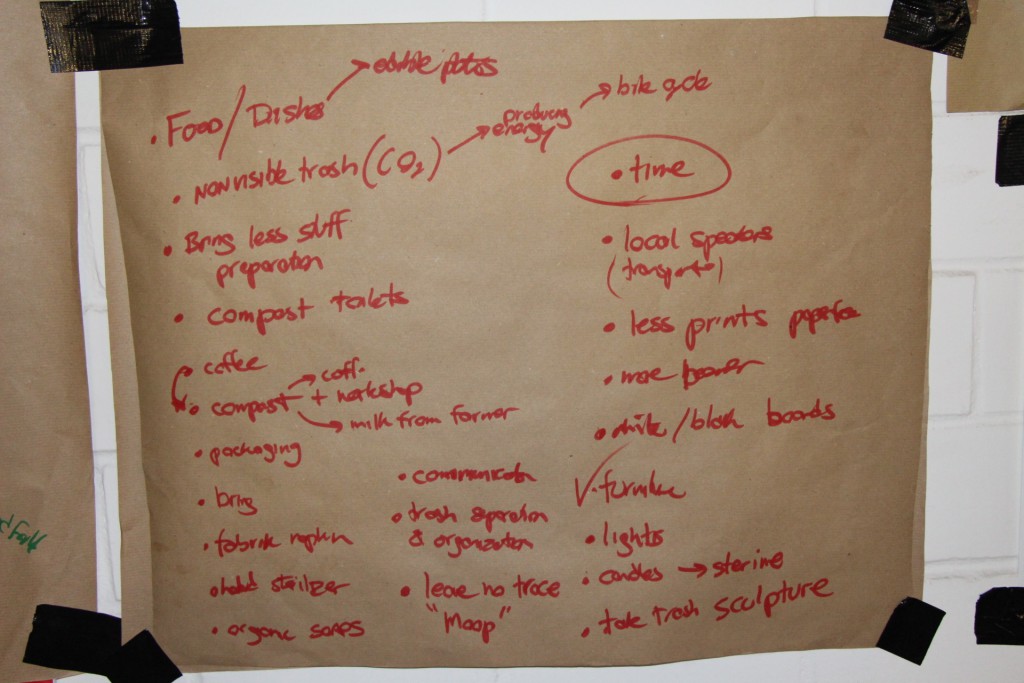 • Food/Dishes → edible plates
• NONvisible trash (CO2) → producing energy → bike cycle
• Bring less stuff
preparation
• compost toilets
• coffee
• compost → coff.
+ workshop
→ milk from farmer
• packaging
• bring
• fabric napkin
• hand sterilizer
• organic soaps
• communication
• trash separation
& organization
• leave no trace
"Moop"
• time
• local speakers
(transport)
• less prints
• more
• white/black boards
√ • furniture
• lights
• candles → sterine
• take trash sculpture